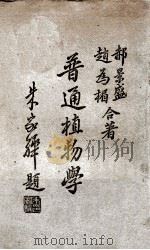 郝景盛
趙為楣 合著
普通植物學
朱家驊題
mtoou.info